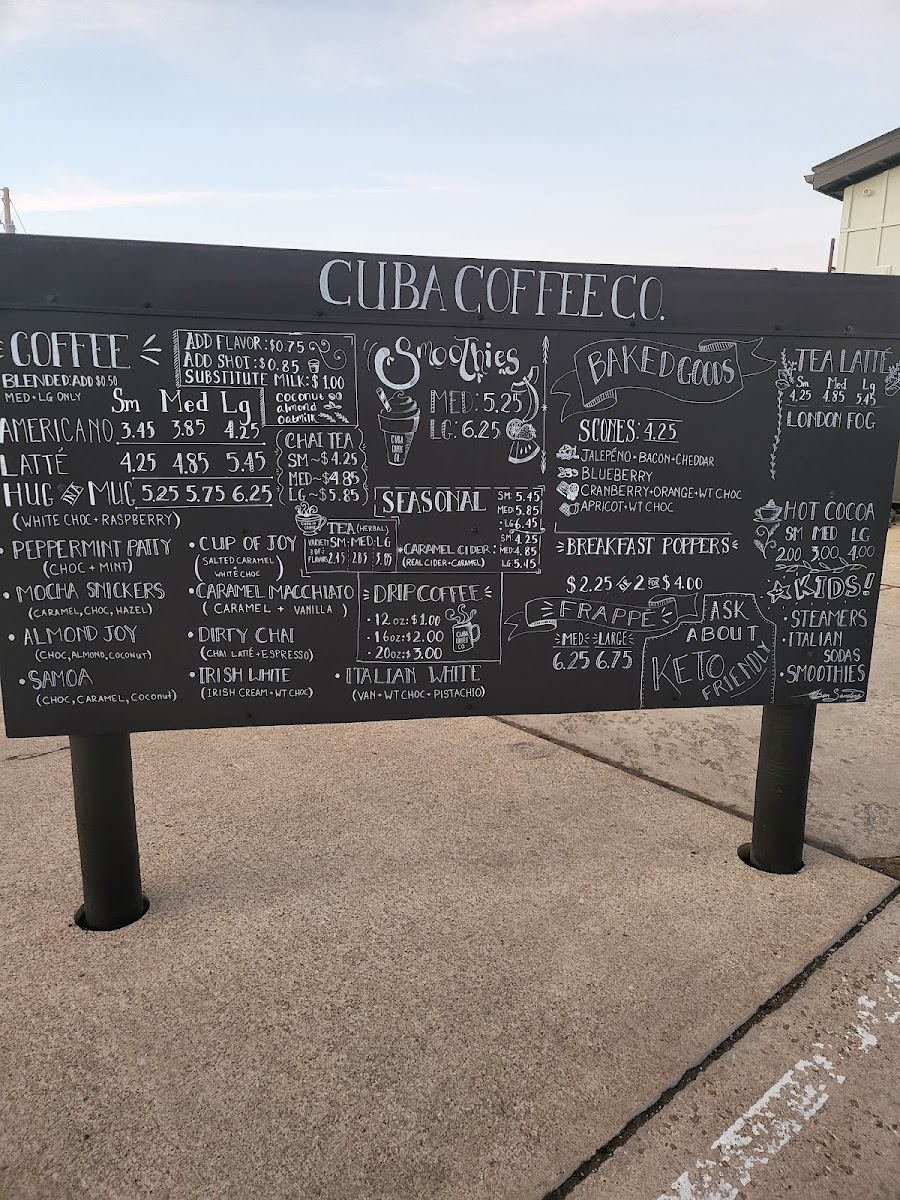 CUBA COFFEE CO.
COFFEE
BLENDED: ADD $0.50
MED + LG ONLY
Sm Med Lg
AMERICANO 3.45 3.85 4.25
LATTÉ 4.25 4.85 5.45
HUG IN A MUG 5.25 5.75 6.25
(WHITE CHOC + RASPBERRY)
• PEPPERMINT PATTY
(CHOC + MINT)
• MOCHA SNICKERS
(CARAMEL, CHOC, HAZEL)
• ALMOND JOY
(CHOC, ALMOND, COCONUT)
• SAMOA
(CHOC, CARAMEL, Coconut)
• CUP OF JOY
(SALTED CARAMEL
WHITE CHOC)
• CARAMEL MACCHIATO
(CARAMEL + VANILLA)
• DIRTY CHAI
(CHAI LATTÉ + ESPRESSO)
• IRISH WHITE
(IRISH CREAM + WT CHOC)
• ITALIAN WHITE
(VAN + WT CHOC + PISTACHIO)
ADD FLAVOR: $0.75
ADD SHOT: $0.85
SUBSTITUTE MILK: $1.00
coconut
almond
oatmilk
CHAI TEA
SM ~ $4.25
MED ~ $4.85
LG ~ $5.85
TEA (HERBAL)
VARIETY OF FLAVORS
SM: MED: LG
2.45 2.85 3.85
Smoothies
MED: 5.25
LG: 6.25
CUBA
COFFEE
CO
SEASONAL
SM: 5.45
MED: 5.85
LG: 6.45
*CARAMEL CIDER:
(REAL CIDER + CARAMEL)
SM: 4.25
MED: 4.85
LG: 5.45
DRIP COFFEE
• 12 oz: $1.00
• 16 oz: $2.00
• 20 oz: $3.00
CUBA
COFFEE
CO
BAKED GOODS
SCONES: 4.25
JALEPÉNO + BACON + CHEDDAR
BLUEBERRY
CRANBERRY + ORANGE + WT CHOC
APRICOT + WT CHOC
BREAKFAST POPPERS
$2.25 or 2 FOR $4.00
FRAPPE
MED LARGE
6.25 6.75
ASK
ABOUT
KETO
FRIENDLY
TEA LATTÉ
Sm Med Lg
4.25 4.85 5.45
LONDON FOG
HOT COCOA
SM MED LG
2.00 3.00 4.00
KIDS!
• STEAMERS
• ITALIAN
SODAS
• SMOOTHIES